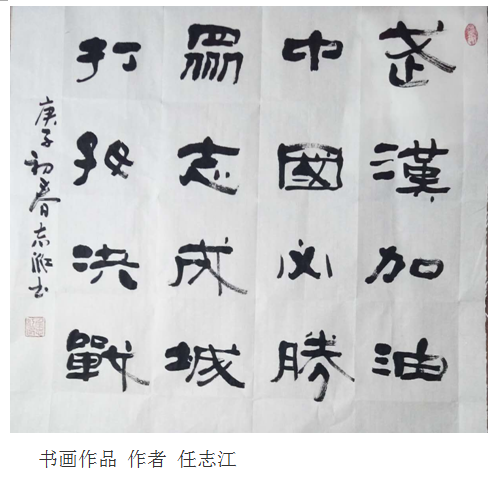 武漢加油
中國必勝
眾志成城
打好决戰
庚子初春志江书
书画作品 作者 任志江